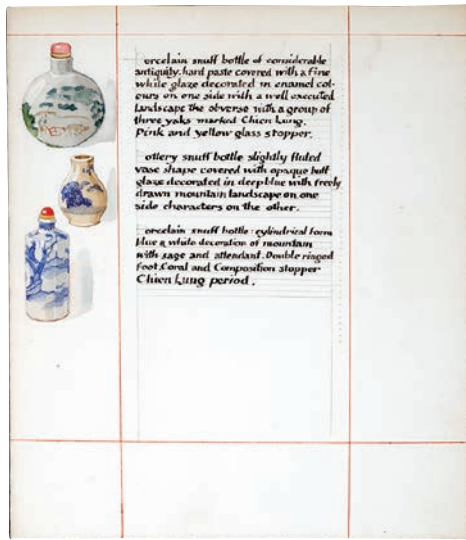 orcelain snuff bottle of considerable
antiquity. hard paste covered with a fine
while glaze decorated in enamel col-
ours on one side with a well executed
landscape the obverse with a group of
three yaks marked Chien Lung.
Pink and yellow glass stopper.
ottery snuff bottle slightly fluted
vase shape covered with opaque buff
glaze decorated in deep blue with freely
drawn mountain landscape on one
side characters on the other.
orcelain snuff bottle: cylindrical form
blue & white decoration of mountain
with sage and attendant. Double ringed
foot. Coral and Composition stopper
Chien Lung period.